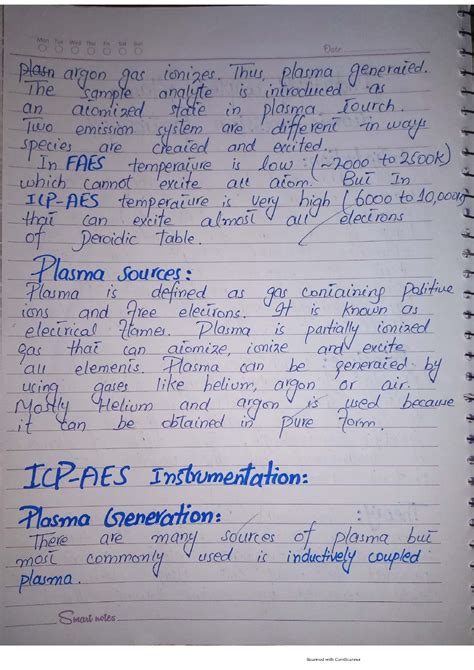 Mon Tue Wed Thu Fri Sat Sun
Date
plasn argon gas ionizes. Thus, plasma generated.
The sample analyte is introduced as
an atomized state in plasma Tourch.
Two emission system are different in ways
species are created and excited.
In FAES temperature is low (~2000 to 2500K)
which cannot excite all atom. But In
ICP-AES temperature is very high (6000 to 10,000K)
that can excite almost all electrons
of Peroidic Table.
Plasma sources:
Plasma is defined as gas containing Positive
ions and Free electrons. It is known as
electrical flames. Plasma is partially ionized
gas that can atomize, ionize and excite
all elements. Plasma can be generated by
using gases like helium, argon or air.
Mostly Helium and argon is used because
it can be obtained in pure form.
ICP-AES Instrumentation:
Plasma Generation:
There are many sources of plasma but
most commonly used is inductively coupled
plasma.
Smart notes
Scanned with CamScanner